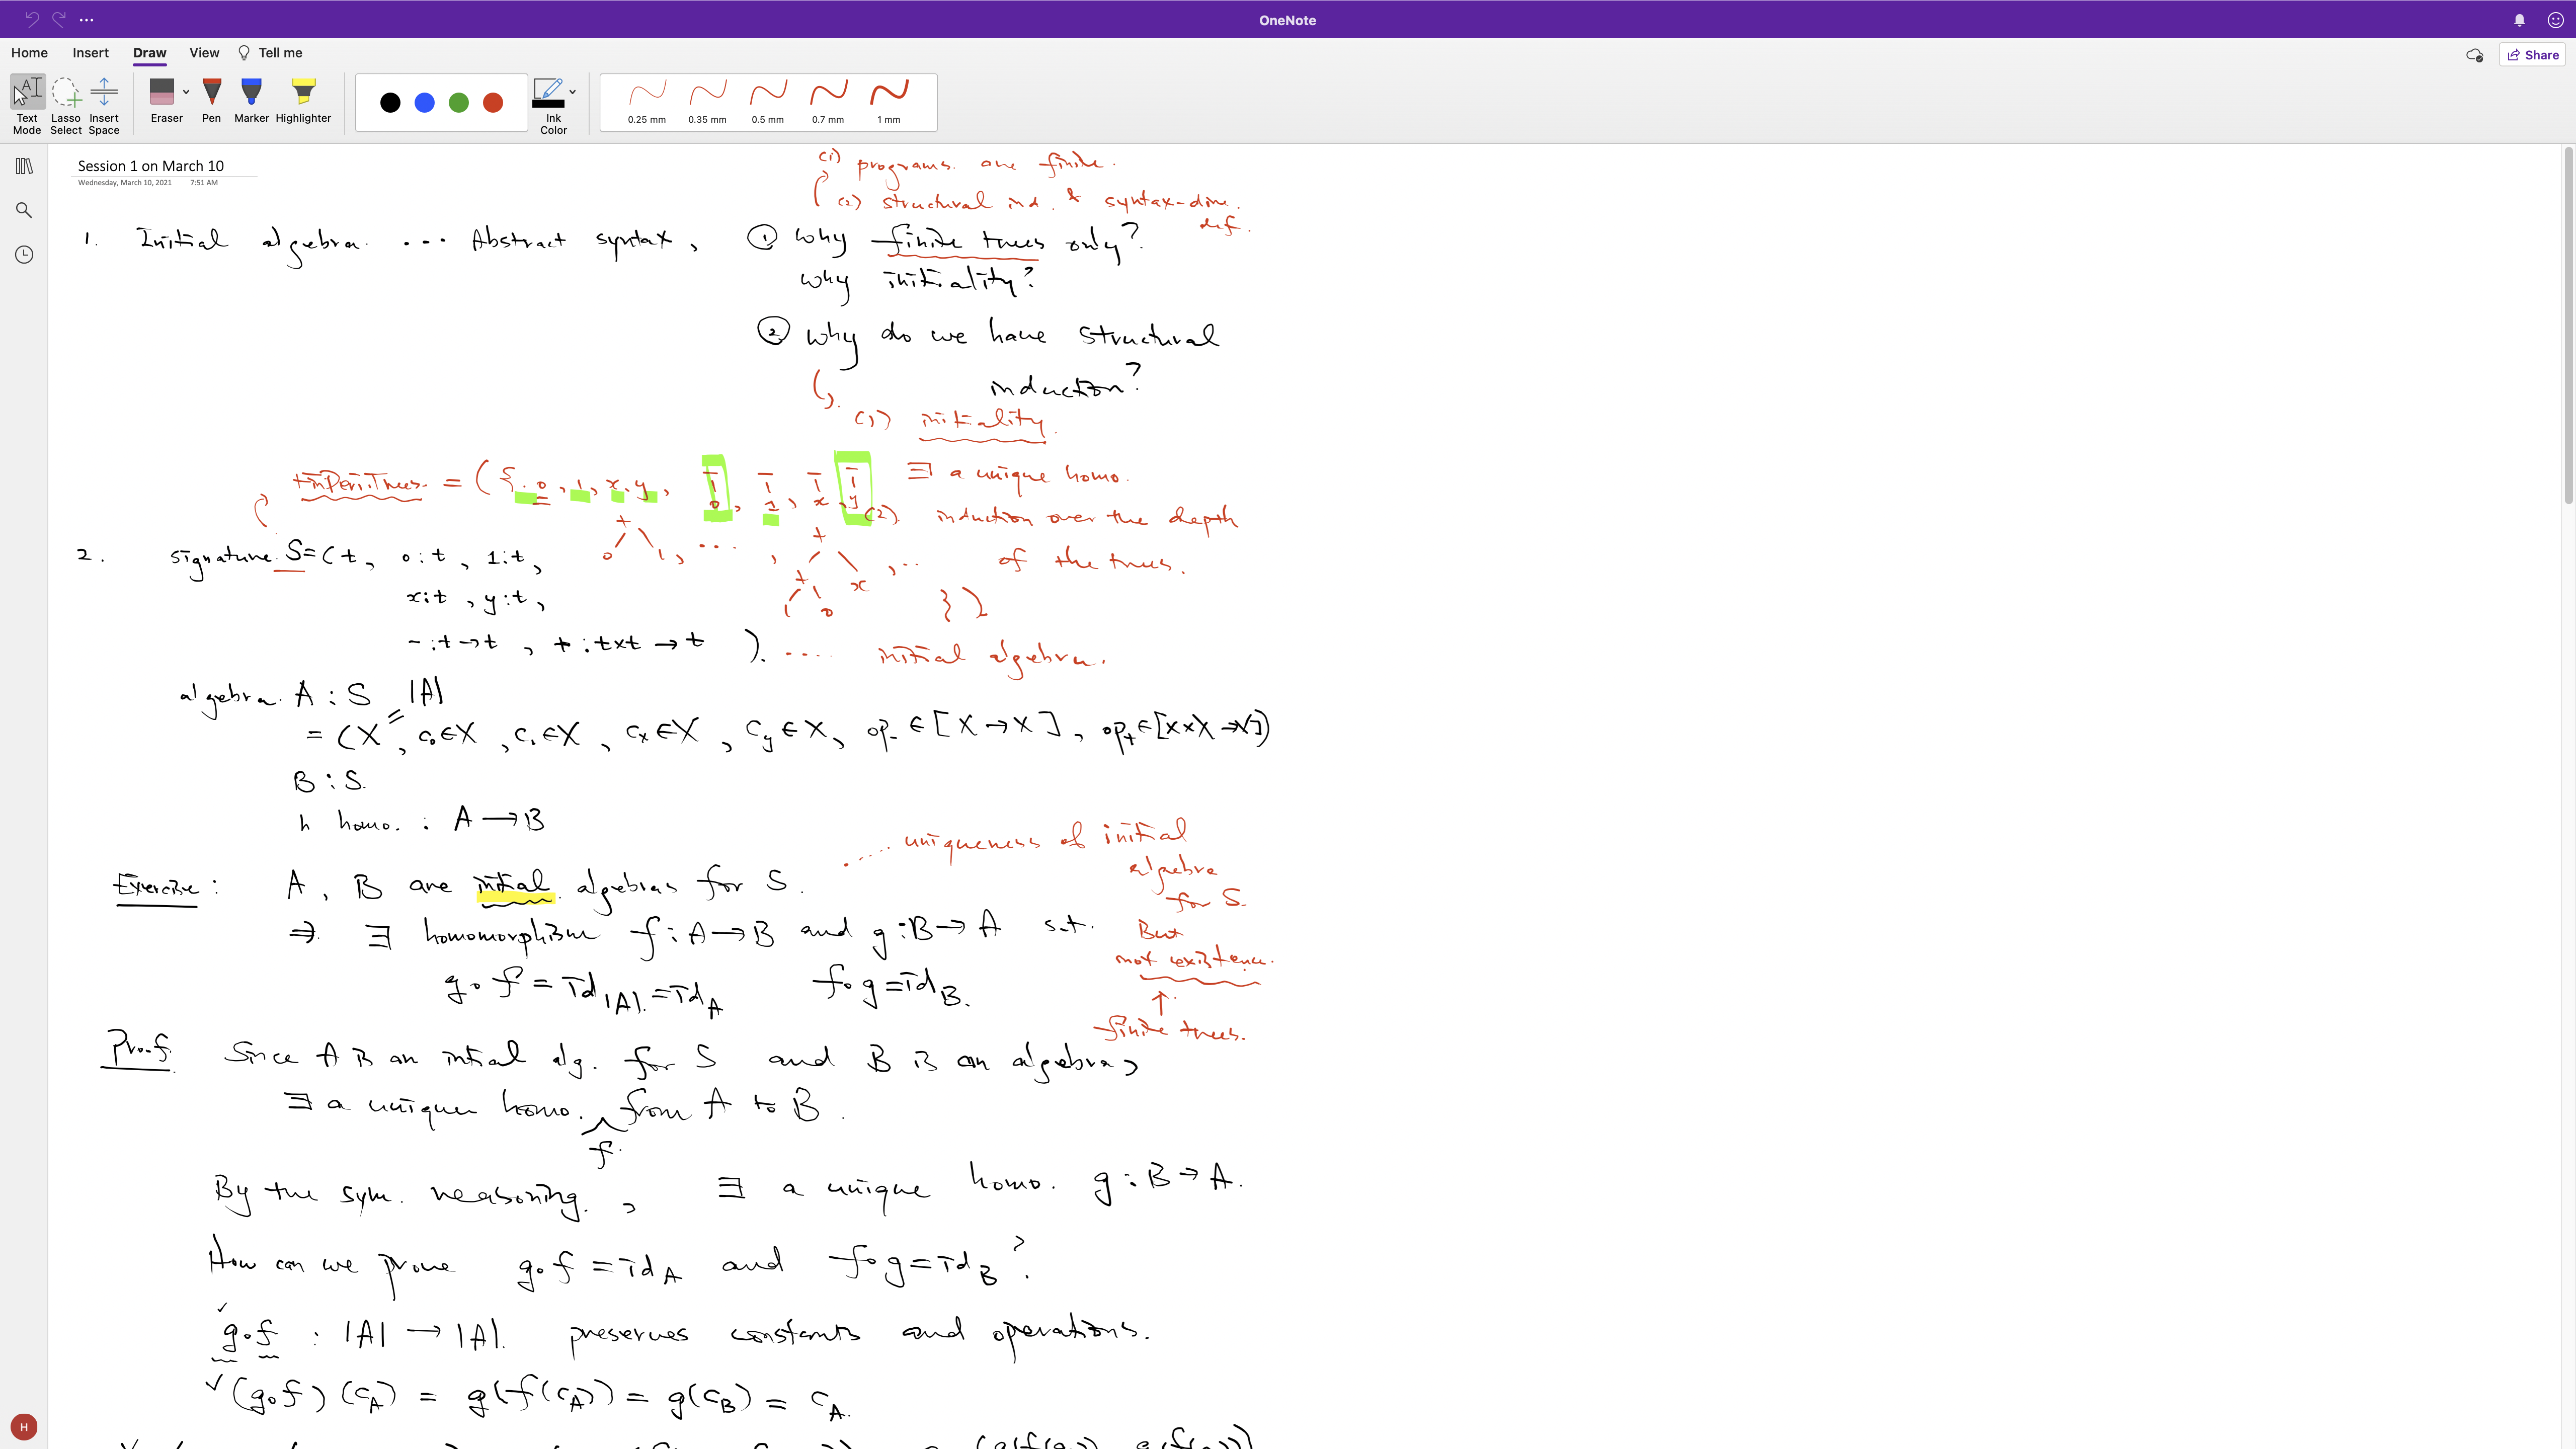 OneNote
Home Insert Draw View Tell me
Share
Text Mode
Lasso Select
Insert Space
Eraser
Pen
Marker
Highlighter
Ink Color
0.25 mm
0.35 mm
0.5 mm
0.7 mm
1 mm
Session 1 on March 10
Wednesday, March 10, 2021 7:51 AM
(1) programs are finite.
(2) structural ind. & syntax-dire. def.
1. Initial algebra ... Abstract syntax, ① why finite trees only?
why initiality?
② why do we have structural
induction?
(1) initiality.
∃ a unique homo.
(2) induction over the depth
of the trees.
= ({ 0, 1, x, y, - 0, - 1, - x, - y
+ 0 1, ... , + + 1 0 x, ...
})
2. signature S = (t, 0:t, 1:t,
x:t, y:t,
-:t→t, +:t×t→t ). .... initial algebra.
algebra A : S |A|
= (X, c₀∈X, c₁∈X, cₓ∈X, c_y∈X, op₋∈[X→X], op₊∈[X×X→X])
B : S.
h homo. : A → B
.... uniqueness of initial
algebra
for S.
But
not existence.
↑
finite trees.
Exercise : A, B are initial algebras for S.
⇒ ∃ homomorphism f : A → B and g : B → A s.t.
g∘f = id_|A| = id_A f∘g = id_B.
Proof. Since A is an intial alg. for S and B is an algebra,
∃ a unique homo. f from A to B.
By the sym. reasoning, ∃ a unique homo. g : B → A.
How can we prove g∘f = id_A and f∘g = id_B ?
✓ g∘f : |A| → |A|. preserves constants and operations.
✓ (g∘f)(c_A) = g(f(c_A)) = g(c_B) = c_A.
H